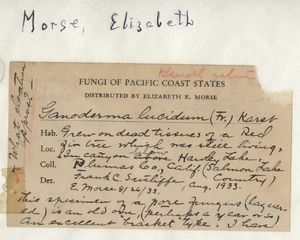 Morse, Elizabeth
FUNGI OF PACIFIC COAST STATES
DISTRIBUTED BY ELIZABETH E. MORSE
Ganoderma lucidum (Fr.) Karst
Hab. Grew on dead tissues of a Red
Fir tree which was still living,
Loc. In canyon above Hawley Lake
Coll. Plumas Co., Calif. (Salmon Lake
Frank C. Sutliffe, Country)
E. Morse 8/26/33. Aug. 1933.
This specimen of a pore fungus (lacquer-
ed) is an old one, (perhaps a year or so)
An excellent bracket type. I have
What elevation